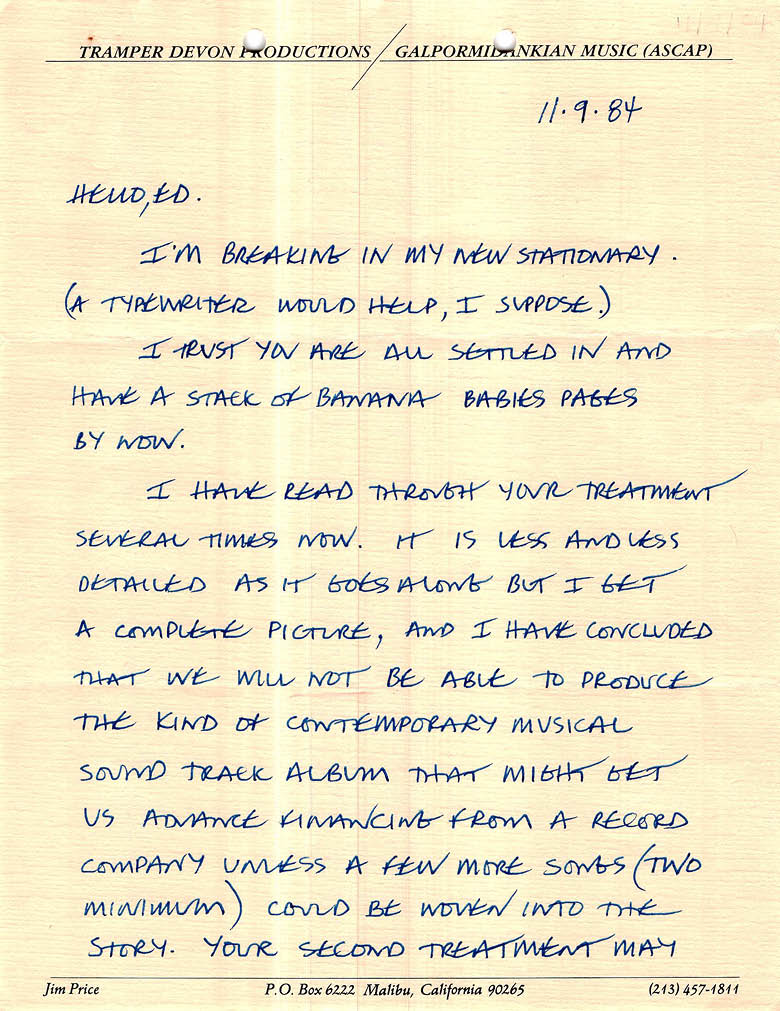 TRAMPER DEVON PRODUCTIONS / GALPORMIDANKIAN MUSIC (ASCAP)
11·9·84
HELLO, ED.
I'M BREAKING IN MY NEW STATIONARY.
(A TYPEWRITER WOULD HELP, I SUPPOSE.)
I TRUST YOU ARE ALL SETTLED IN AND
HAVE A STACK OF BANANA BABIES PAGES
BY NOW.
I HAVE READ THROUGH YOUR TREATMENT
SEVERAL TIMES NOW. IT IS LESS AND LESS
DETAILED AS IT GOES ALONG BUT I GET
A COMPLETE PICTURE, AND I HAVE CONCLUDED
THAT WE WILL NOT BE ABLE TO PRODUCE
THE KIND OF CONTEMPORARY MUSICAL
SOUND TRACK ALBUM THAT MIGHT GET
US ADVANCE FINANCING FROM A RECORD
COMPANY UNLESS A FEW MORE SONGS (TWO
MINIMUM) COULD BE WOVEN INTO THE
STORY. YOUR SECOND TREATMENT MAY
Jim Price P.O. Box 6222 Malibu, California 90265 (213) 457-1811